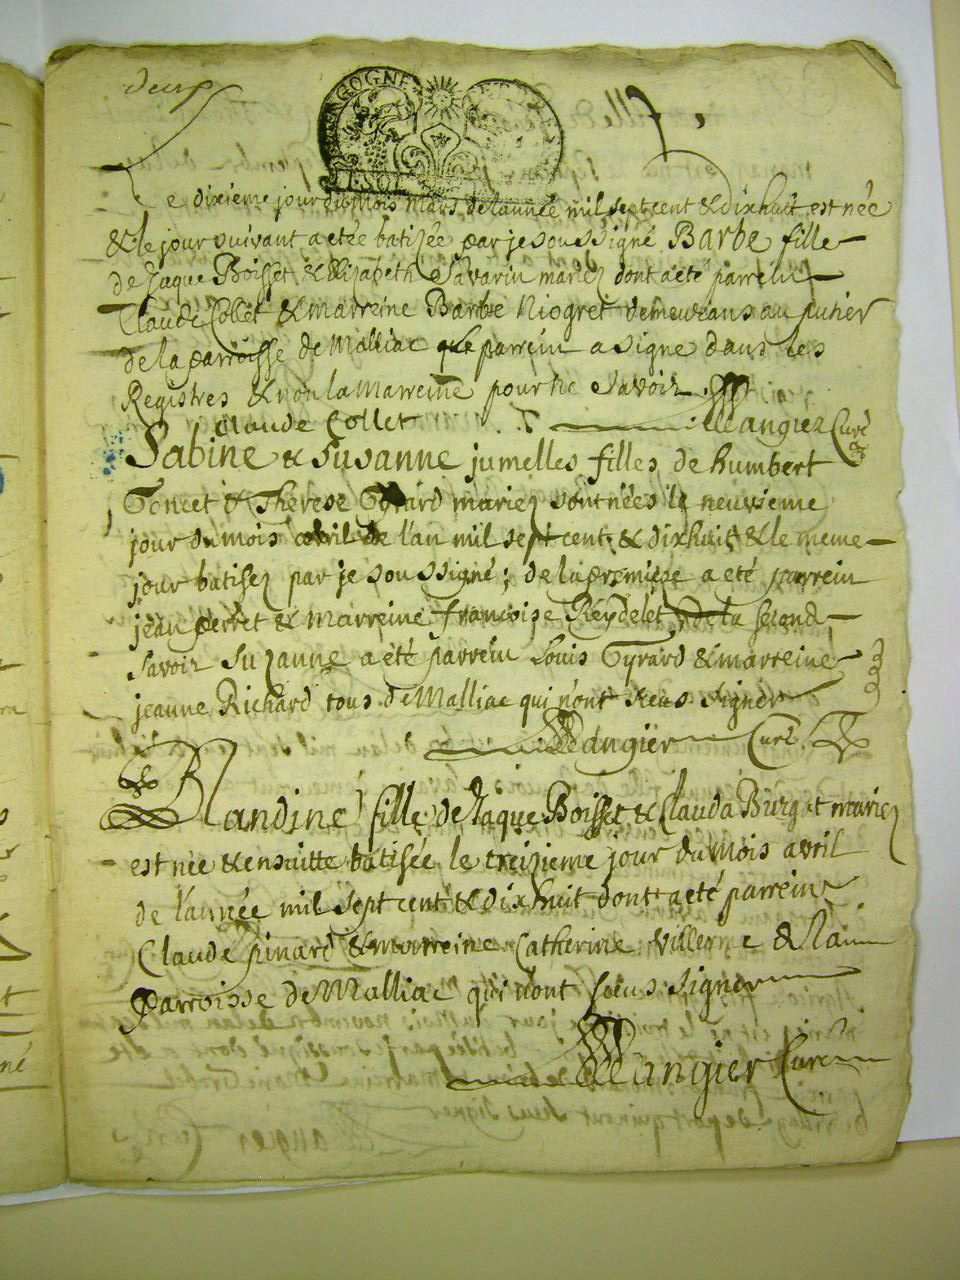 deux
GOGNE
Le dixieme jour du mois mars de l'année mil sept cent & dixhuit est née
& le jour suivant a etée batisée par je soussigné Barbe fille
de Jaque Boisset & Elizabeth Savarin mariez dont a eté parrein
Claude Collet & marreine Barbe Niogret demeurans au
de la parroisse de Malliac que parrein a signé dans les
Registres & non la Marreine pour ne savoir
Claude Collet Dangier Curé
Sabine & Susanne jumelles filles de humbert
Goncet & Therese Gyrard mariez sont nées le neuvieme
jour du mois avril de l'an mil sept cent & dixhuit & le meme
jour batisez par je soussigné; de la premiere a eté parrein
jean perret & Marreine françoise Reydelet & de la second
savoir Suzanne a eté parrein Louis Gyrard & marreine
jeanne Richard tous de Malliac qui n'ont sceus signer
Dangier Curé
Blandine fille de Jaque Boisset & Clauda Burget mariez
est née & ensuitte batisée le treizieme jour du Mois avril
de l'année mil sept cent & dixhuit dont a eté parrein
Claude pinard & marreine Catherine & la
parroisse de Malliac qui n'ont sceus signer
Dangier Curé